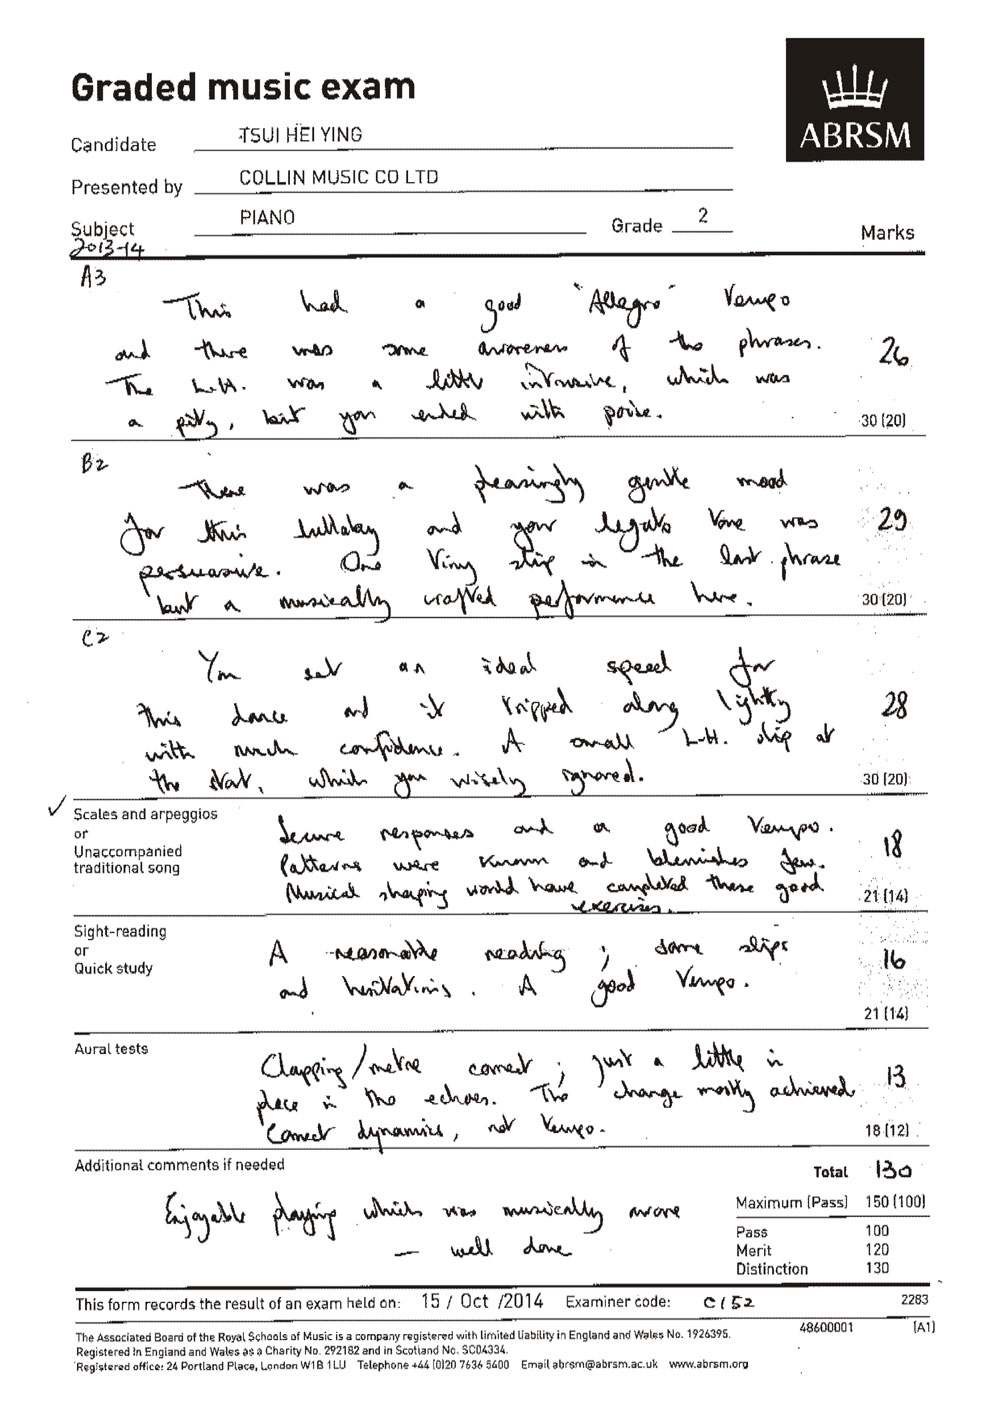 Graded music exam
ABRSM
Candidate TSUI HEI YING
Presented by COLLIN MUSIC CO LTD
Subject PIANO Grade 2
2013-14 Marks
A3
This had a good "Allegro" tempo
and there was some awareness of the phrases. 26
The L.H. was a little intrusive, which was
a pity, but you ended with poise. 30 (20)
B2
There was a pleasingly gentle mood
for this lullaby and your legato tone was 29
persuasive. One tiny slip in the last phrase
but a musically crafted performance here. 30 (20)
C2
You set an ideal speed for
this dance and it tripped along lightly 28
with much confidence. A small L.H. slip at
the start, which you wisely ignored. 30 (20)
✓ Scales and arpeggios
or
Unaccompanied
traditional song
Secure responses and a good tempo.
Patterns were known and blemishes few. 18
Musical shaping would have completed these good
exercises. 21 (14)
Sight-reading
or
Quick study
A reasonable reading; some slips 16
and hesitations. A good tempo.
21 (14)
Aural tests
Clapping/metre correct; just a little in 13
place in the echoes. The change mostly achieved
Correct dynamics, not tempo. 18 (12)
Additional comments if needed
Total 130
Enjoyable playing which was musically aware
— well done
Maximum (Pass) 150 (100)
Pass 100
Merit 120
Distinction 130
This form records the result of an exam held on: 15 / Oct / 2014 Examiner code: C152 2283
The Associated Board of the Royal Schools of Music is a company registered with limited liability in England and Wales No. 1926395. 48600001 (A1)
Registered in England and Wales as a Charity No. 292182 and in Scotland No. SC04334.
Registered office: 24 Portland Place, London W1B 1LU Telephone +44 (0)20 7636 5400 Email abrsm@abrsm.ac.uk www.abrsm.org